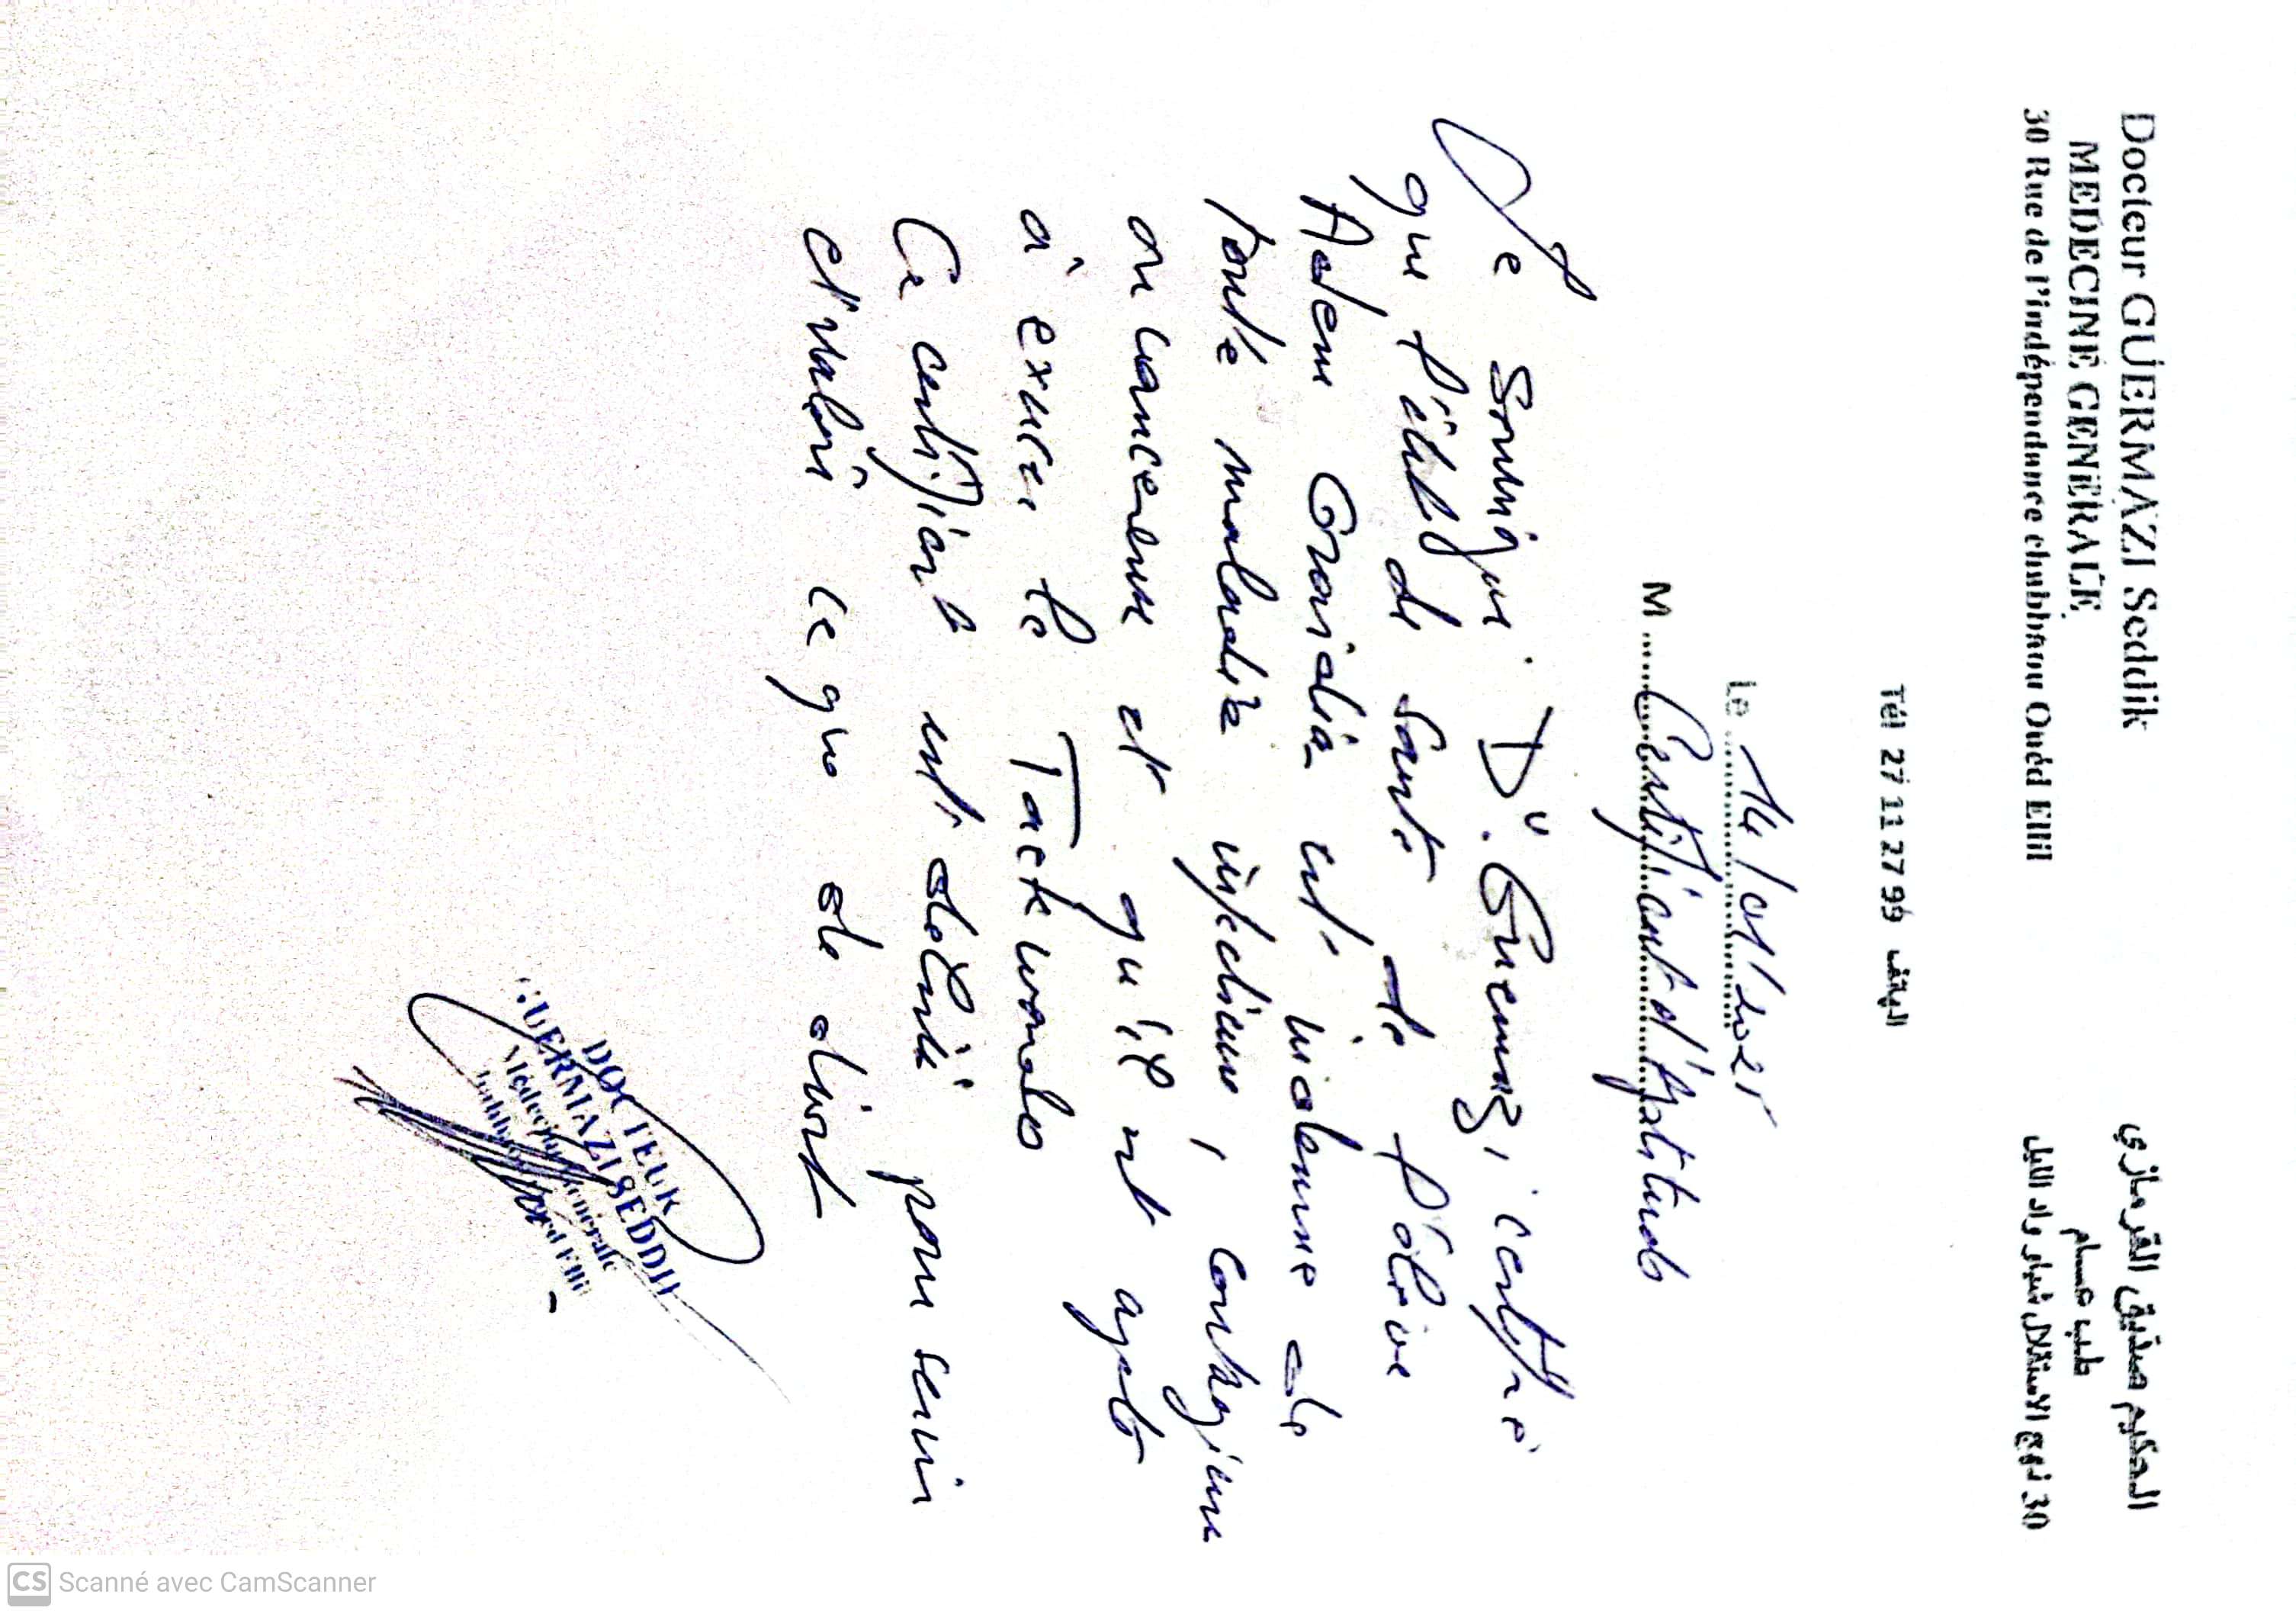 Docteur GUERMAZI Seddik
MEDECINE GENERALE
30 Rue de l'indépendance chabbaou Ouéd Ellil
الحكيم صديق القرمازي
طب عام
30 نهج الاستقلال شباو واد الليل
Tél 27 11 27 99 الهاتف
Le
M Certificat d'Aptitude
Je soussigné Dr. Guermazi certifie
que l'état de santé de l'élève
Adem est indemne de
toute maladie infectieuse, contagieuse
ou cancereuse et qu'il est apte
à exercer le Taekwondo
Ce certificat est délivré pour servir
et valoir ce que de droit
DOCTEUR
GUERMAZI SEDDIK
Médecine Générale
Oued Ellil
CS Scanné avec CamScanner